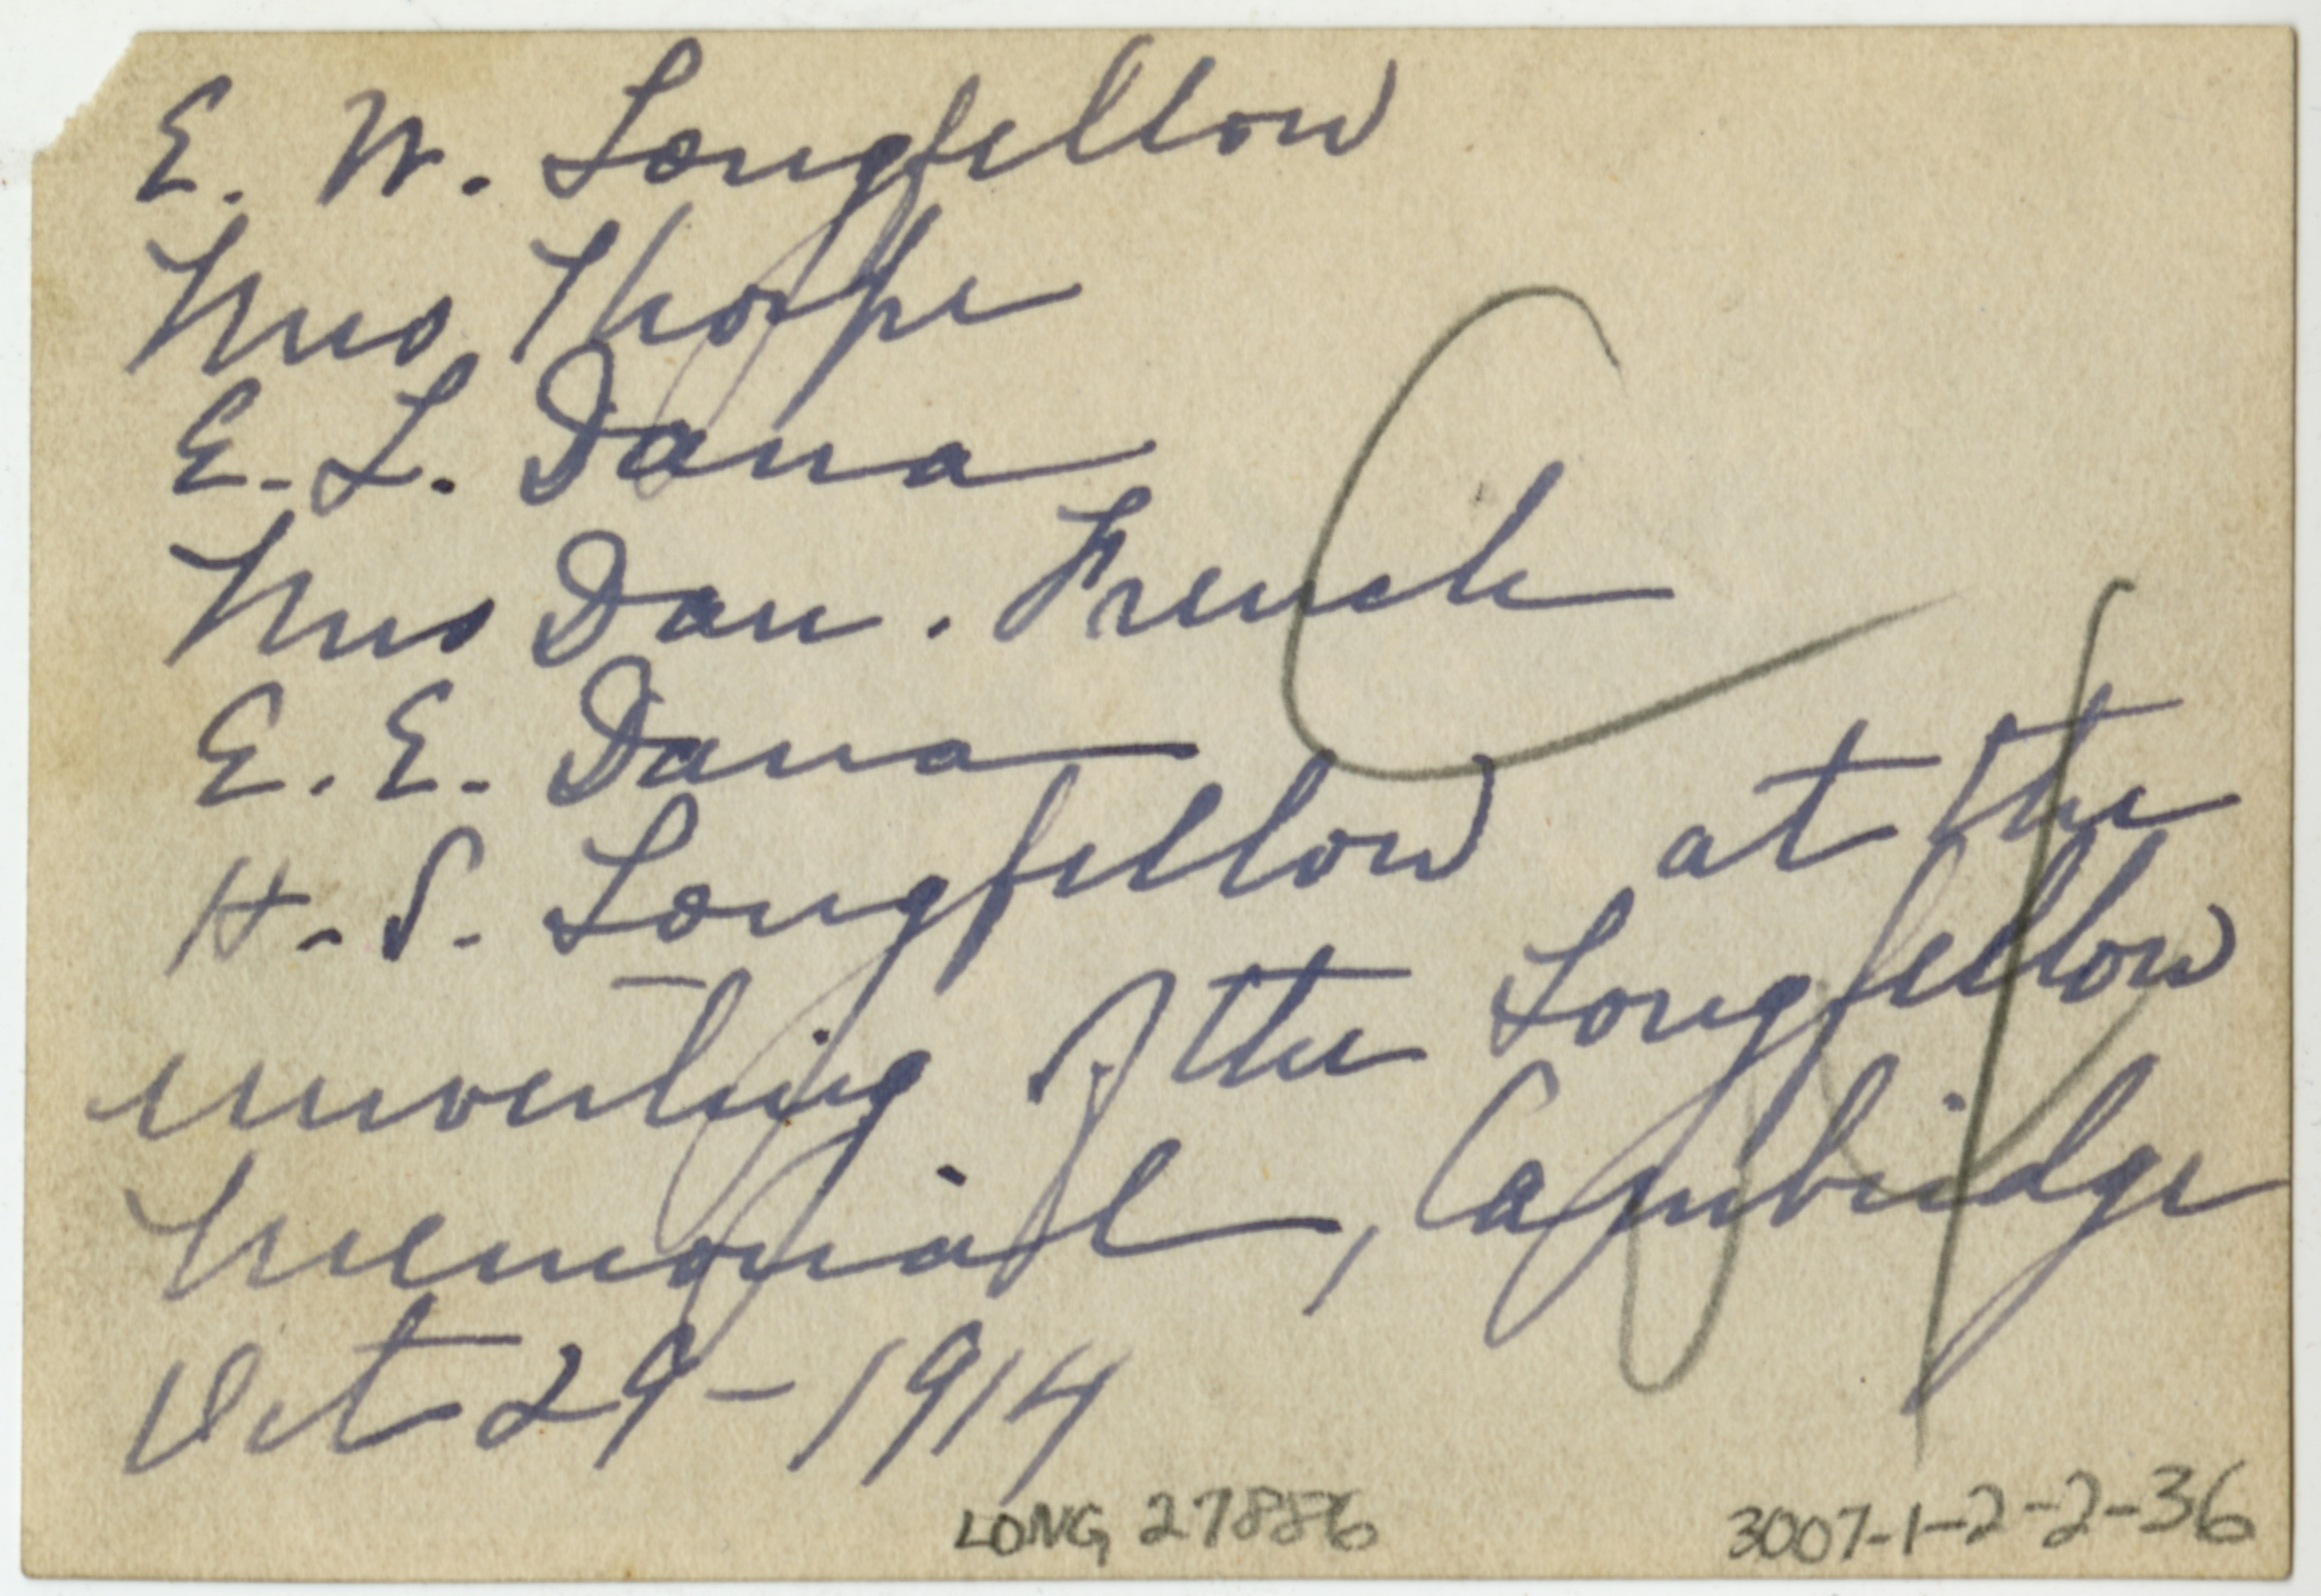 E. W. Longfellow
Mrs Thorpe
E. L. Dana
Mrs Dan. French
E. E. Dana
H. S. Longfellow at the
unveiling of the Longfellow
Memorial, Cambridge
Oct 29-1914
LONG 27886 3007-1-2-2-36